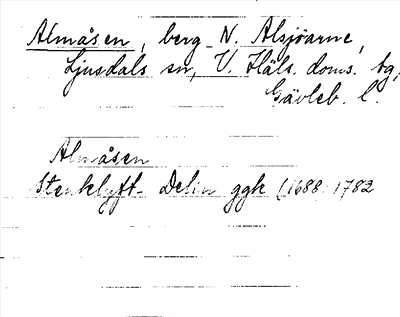 Almåsen, berg N. Alsjöarne,
Ljusdals sn, V. Häls. doms. tg,
Gävleb. l.
Almåsen
Stenklyft- Delin ggk (1688) 1782